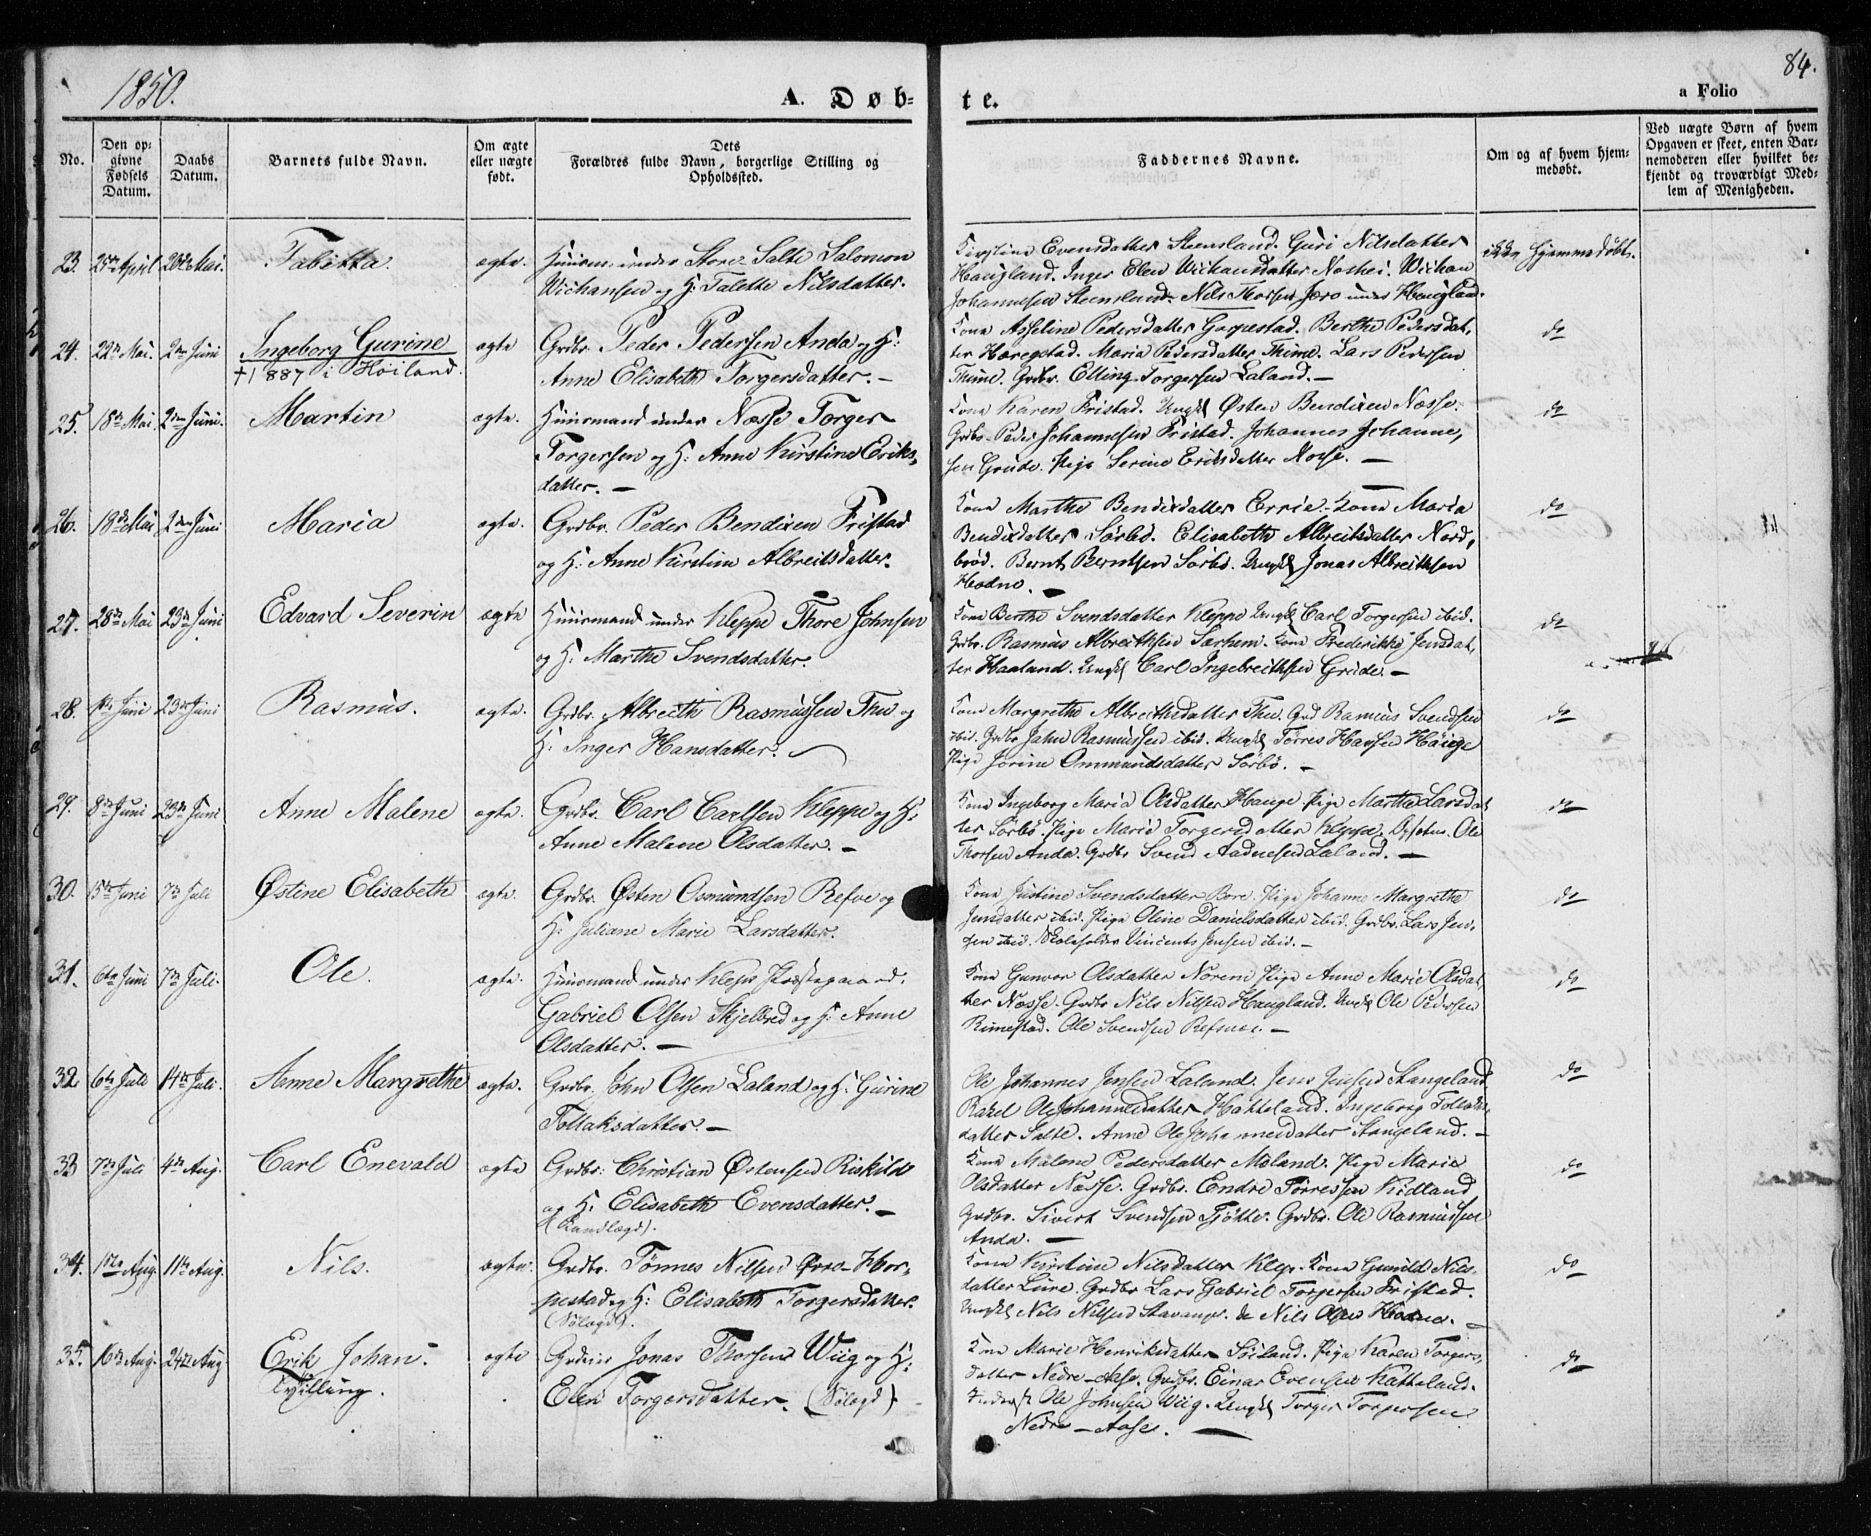 1850.
A. Døb-
te.
84.
a Folio
No.
Den op-
givne
Fødsels
Datum.
Daabs
Datum.
Barnets fulde Navn.
Om ægte
eller uægte
født.
Dets
Forældres fulde Navn, borgerlige Stilling og
Opholdssted.
Faddernes Navne.
Om og af hvem hjem-
medøbt.
Ved uægte Børn af hvem
Opgaven er skeet, enten Bar-
nemoderen eller hvilket be-
kjendt og troværdigt Med-
lem af Menigheden.
23. April 20de Mai. Tabitta. ægte. Huusm. under Store Salte Salomon
Wichansen og H: Talette Nilsdatter.
Kirstine Evensdatter Steensland. Guri Nilsdatter
Haugland. Inger Elen Wichansdatter Nashei. Wichan
Johannesen Steensland. Nils Thorsen Jæro under Haugland.
ikke hjemmedøbt.
24. 22de Mai. 2den Juni Ingeborg Gurine ægte Grdbr. Peder Pedersen Anda og H:
†1887 i Høiland.
Anne Elisabeth Torgersdatter. —
Kone Asseline Pedersdatter Garpestad. Berthe Pedersdat,
ter Haregstad. Maria Pedersdatter Thime. Lars Pedersen
Thime. Grdbr. Elling Torgersen Laland. —
do
25. 18de Mai. 2den Juni. Martin ægte. Huusmand under Næsse Torger
Torgersen og H: Anne Kirstine Eriks,
datter. —
Kone Karen Fristad. Ungk. Østen Bendixen Næsse.
Grdbr. Peder Johannesen Fristad. Johannes Johanne,
sen Grude. Pige Serine Eriksdatter Næsse. —
do
26. 18de Mai 2den Juni Maria ægte. Grdbr. Peder Bendixen Fristad
og H: Anne Kirstine Albreitsdatter.
Kone Marthe Bendixdatter Errie. Kone Maria
Bendixdatter Sørbø. Elisabeth Albreitsdatter Nord,
brød. Bernt Berntsen Sørbø. Ungk. Jonas Albreithsen
Hodne. —
do
27. 28de Mai 23de Juni Edvard Severin ægte Huusmand under Kleppe Thore Johnsen
og H: Marthe Svendsdatter.
Kone Berthe Svendsdatter Kleppe Ungk. Carl Torgersen ibid.
Grdbr. Rasmus Albreithsen Særhem. Kone Frederikke Jensdat,
ter Haaland. Ungk. Carl Ingebreithsen Grude. —
do
28. 1ste Juni 23de Juni Rasmus. ægte. Grdbr. Albreith Rasmussen Thu og
H: Inger Hansdatter.
Kone Margrethe Albreithsdatter Thu. Grd Rasmus Svendsen
ibid. Grdbr. John Rasmussen ibid. Ungk. Tørres Hansen Hauge
Pige Jorine Ommundsdatter Sørbø. —
do
29. 8de Juni 23de Juni Anne Malene ægte. Grdbr. Carl Carlsen Kleppe og H:
Anne Malene Olsdatter. —
Kone Ingeborg Maria Olsdatter Hauge Pige Marthe Larsdat
ter Sørbø. Pige Marie Torgersdatter Kleppe. Ole
Thorsen Anda. Grdbr. Svend Aadnesen Laland. —
do
30. 15de Juni 7de Juli Østine Elisabeth ægte. Grdbr. Østen Osmundsen Refve og
H: Juliane Marie Larsdatter.
Kone Justine Svendsdatter Bore. Pige Johanne Margrethe
Jensdatter ibid. Pige Oline Danielsdatter ibid. Grdbr. Lars Jen,
sen ibid. Skoleholder Vincents Jensen ibid. —
do
31. 6te Juni 7de Juli. Ole. ægte. Huusmand under Klep Præstegaard.
Gabriel Olsen Skjelbred og H: Anne
Olsdatter. —
Kone Gunvor Olsdatter Norem Pige Anne Marie Olsdat,
ter Næsse. Grdbr. Nils Nilsen Haugland. Ungk. Ole Pedersen
Rimestad. Ole Svendsen Refsnes. —
do
32 6te Juli 14de Juli. Anne Margrethe ægte. Grdbr. John Olsen Laland og H: Gurine
Tollaksdatter. —
Ole Johannes Jensen Laland. Jens Jensen Stangeland
Rakel Ole Johannesdatter Hatteland. Ingeborg Tollaks,
datter Salte. Anne Ole Johannesdatter Stangeland. —
do
33 7de Juli 4de Aug. Carl Enevald ægte Grdbr. Christian Østensen Riskild
og H: Elisabeth Evensdatter. —
(Landlægd).
Kone Malene Pedersdatter Meland. Pige Maria
Olsdatter Næsse. Grdbr. Endre Tørressen Kidland
Grdbr. Sivert Svendsen Tjøtte. Grdbr. Ole Rasmussen
Anda. —
do
34. 1ste Aug. 11te Aug. Nils. ægte. Grdbr. Tønnes Nilsen Øvre-Hor,
pestad og H: Elisabeth Torgersdatter.
(Sølægd).
Kone Kirstine Nilsdatter Klep. Kone Gunild Nils,
datter Lure. Grdbr Lars Gabriel Torgersen Fristad.
Ungk. Nils Nilsen Stavanger. do Nils Olsen Hodne. —
do
35. 16de Aug. 24de Aug Erik Johan. ægte Jonas Thorsen Wiig og H:
Tvilling.
Elen Torgersdatter. (Sølægd)
Kone Marie Henriksdatter Søiland. Pige Karen Torgers,
datter Nedre-Aase. Grdbr. Einar Evensen Katteland.
Ole Johnsen Wiig. Ungk. Torger Torgersen
Nedre-Aase. —
do